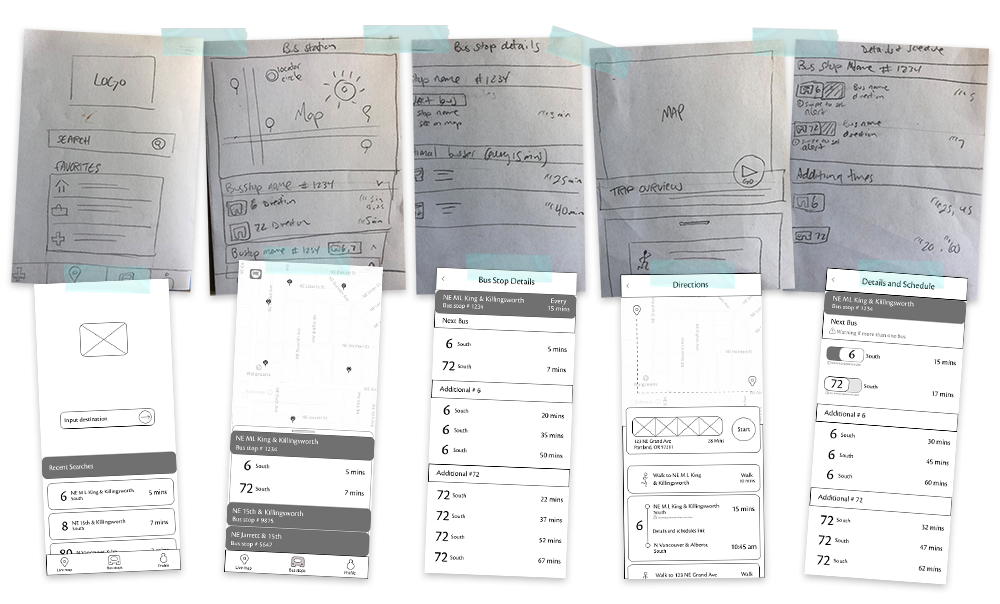 LOGO
SEARCH
FAVORITES
Bus station
locator
circle
Map
Bus stop name # 1234
6 Direction
5 min
72 Direction
5 min
Bus stop name # 1234
6, 7
Bus stop details
stop name # 1234
stop name
see on map
(every 15 min)
25 min
40 min
MAP
GO
TRIP OVERVIEW
Details & Schedule
Bus Stop Name # 1234
6
Bus name
direction
alert
72
Bus name
direction
7
alert
Additional times
6
25, 45
72
20, 60
Input destination
Recent Searches
6 NE ML King & Killingsworth
South
5 mins
8 NE 15th & Killingsworth
South
7 mins
Live map
Bus stops
Profile
NE ML King & Killingsworth
Bus stop # 1234
6 South 5 mins
72 South 7 mins
NE 15th & Killingsworth
Bus stop # 9875
NE Jarrett & 15th
Bus stop # 5647
Live map
Bus stops
Profile
Bus Stop Details
NE ML King & Killingsworth
Bus stop # 1234
Every
15 mins
Next Bus
6 South 5 mins
72 South 7 mins
Additional # 6
6 South 20 mins
6 South 35 mins
6 South 50 mins
Additional #72
72 South 22 mins
72 South 37 mins
72 South 52 mins
72 South 67 mins
Directions
Walgreens
123 NE Grand Ave
Portland, OR 97211
28 Mins
Start
Walk to NE M L King
& Killingsworth
Walk
10 mins
6
NE M L King & Killingsworth
South
15 mins
Details and schedules link
N Vancouver & Alberta,
South
10:45 am
Walk to 123 NE Grand Ave
Walk
Details and Schedule
NE ML King & Killingsworth
Bus stop # 1234
Next Bus
Warning if more than one bus
6 South 15 mins
72 South 17 mins
Additional # 6
6 South 30 mins
6 South 45 mins
6 South 60 mins
Additional # 72
72 South 32 mins
72 South 47 mins
72 South 62 mins